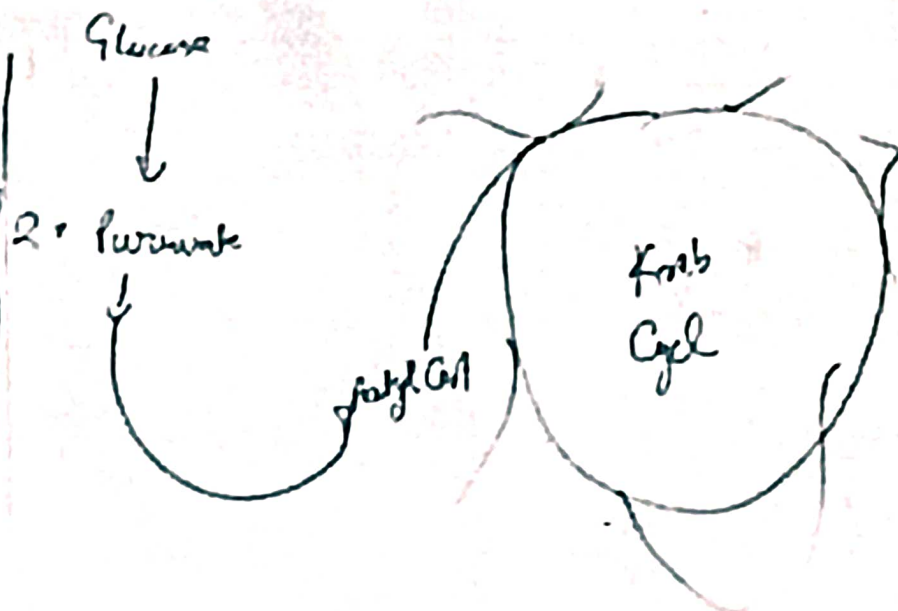 Glucose
2 • Pyruvate
Acetyl CoA
Kreb
Cycl